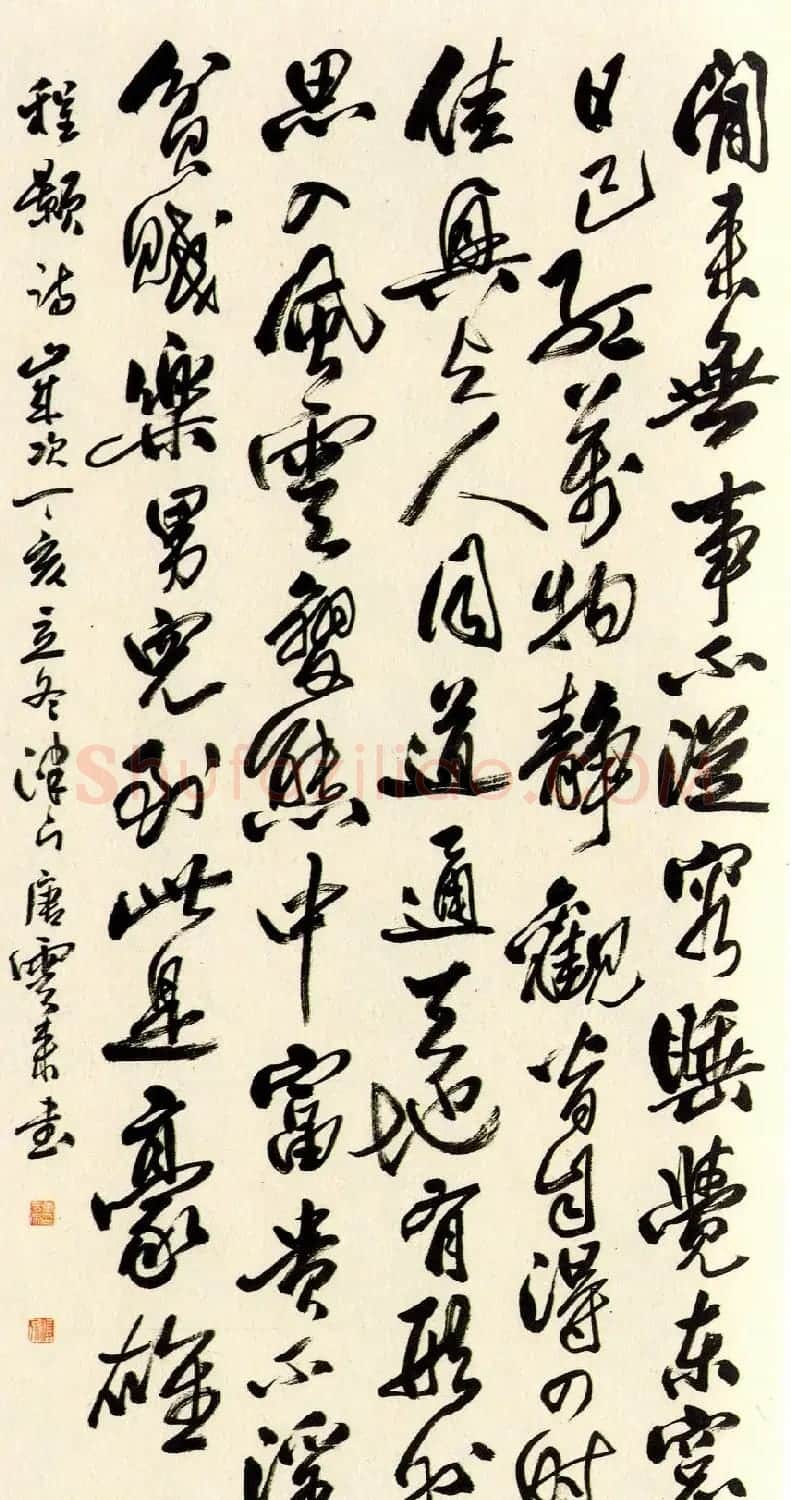 閒来無事不從容睡覺东窗
日已紅萬物静觀皆自得四时
佳興与人同道通天地有形外
思入風雲變態中富貴不淫
貧賤樂男兒到此是豪雄
程颢诗岁次丁亥立冬津门唐雲来书
Shufaziliao.COM